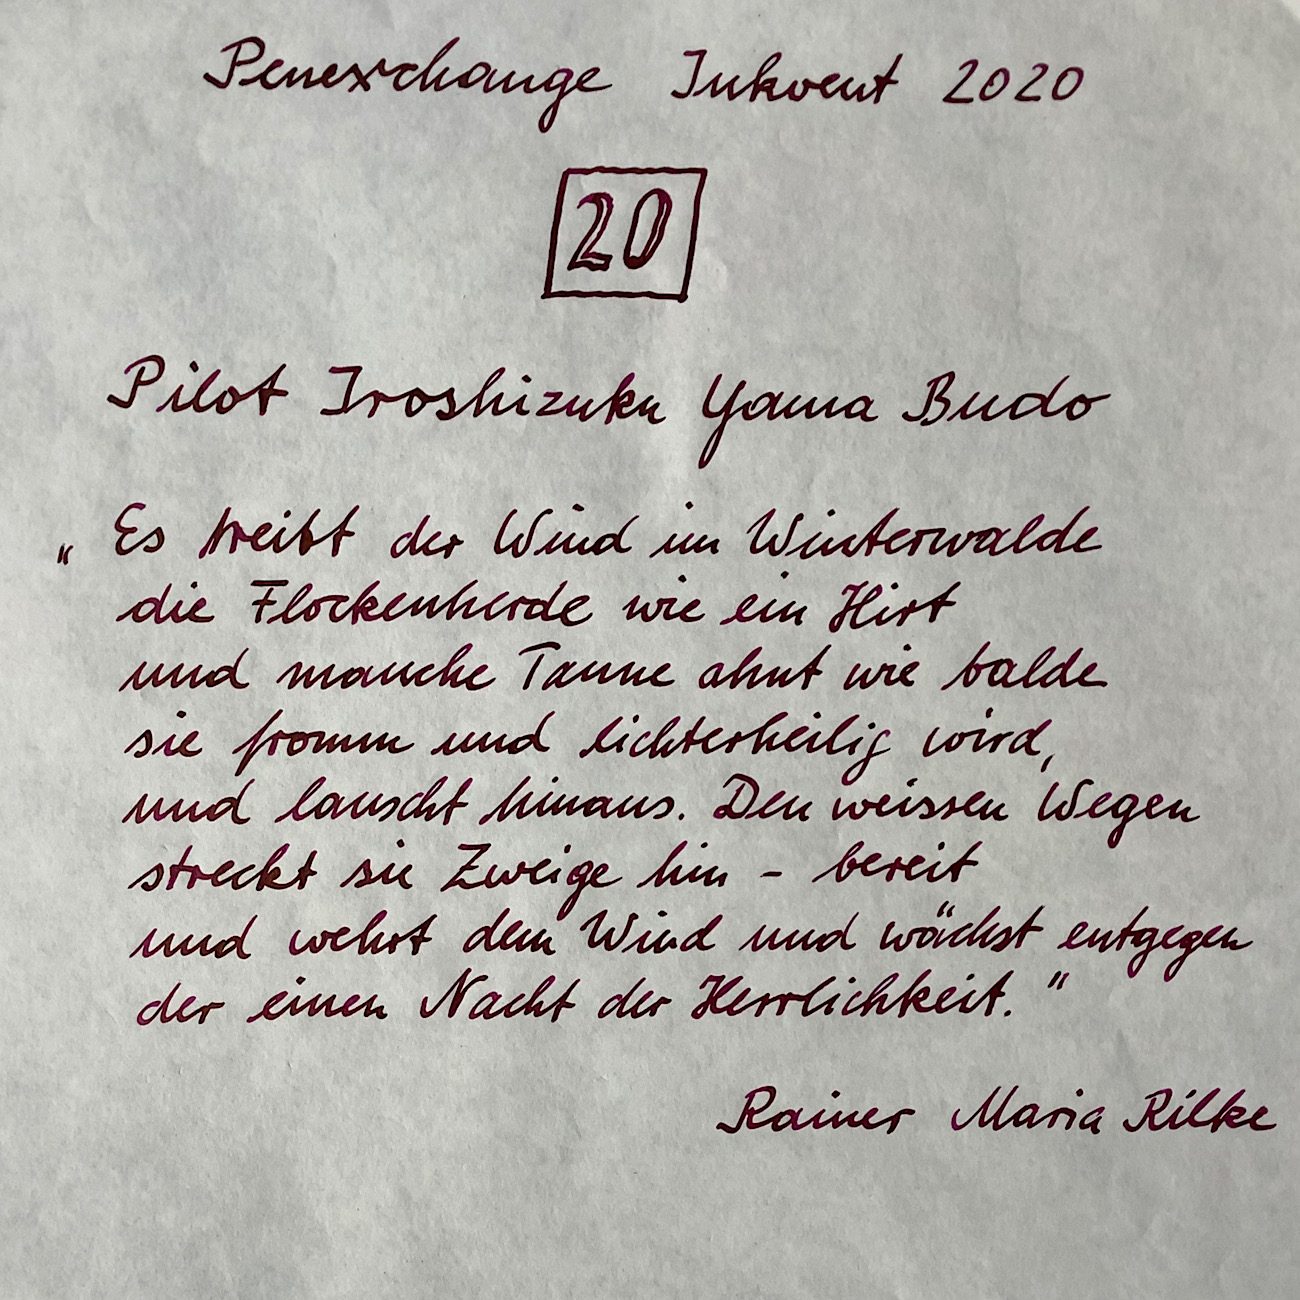 Penexchange Inkvent 2020
20
Pilot Iroshizuku Yama Budo
„Es treibt der Wind im Winterwalde
die Flockenherde wie ein Hirt
und manche Tanne ahnt wie balde
sie fromm und lichterheilig wird,
und lauscht hinaus. Den weissen Wegen
streckt sie Zweige hin - bereit
und wehrt dem Wind und wächst entgegen
der einen Nacht der Herrlichkeit."
Rainer Maria Rilke